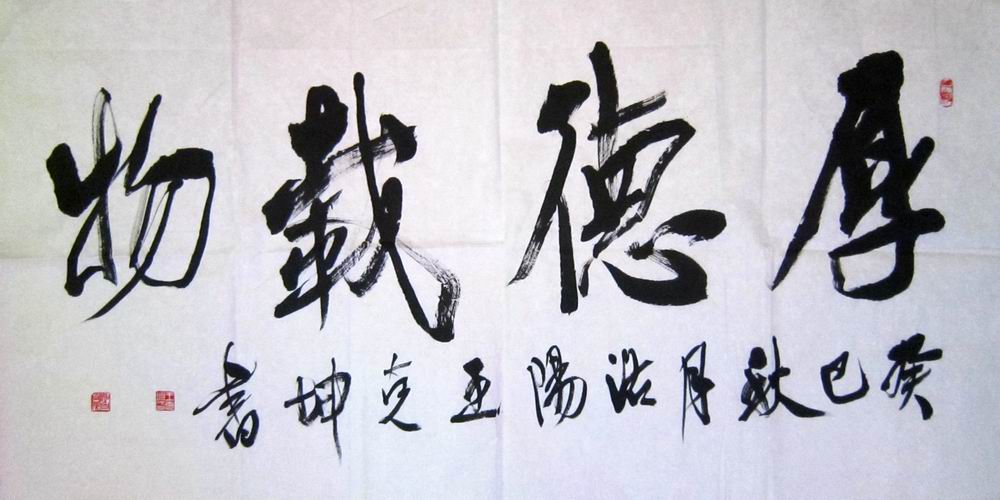 厚德載物
癸巳秋月洛陽王克坤書